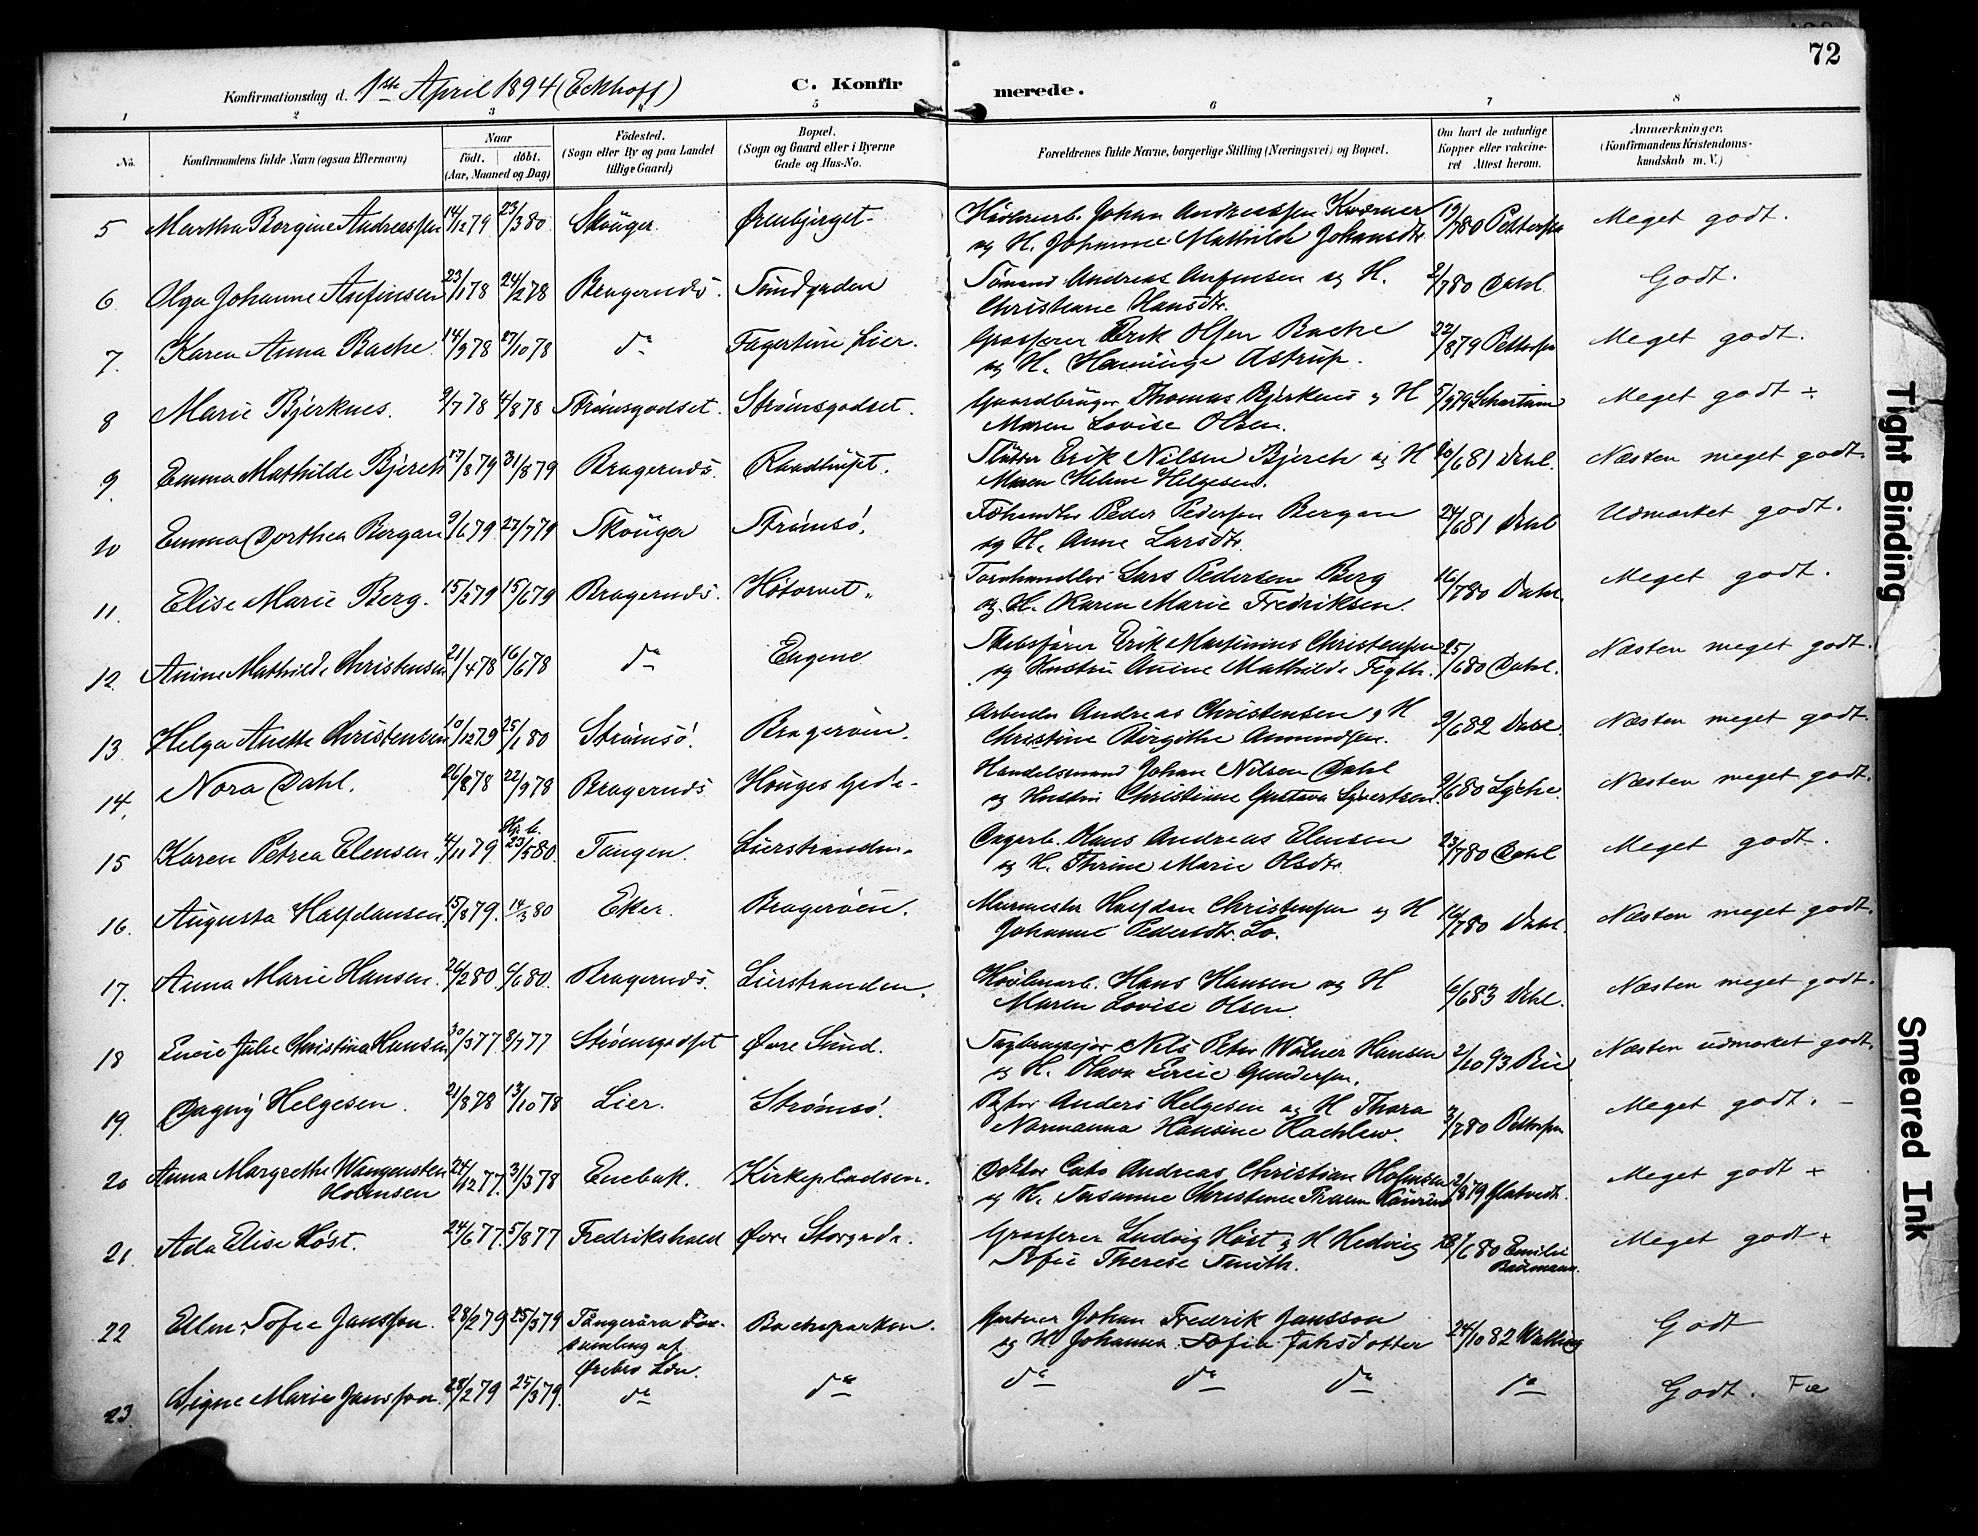 72
Konfirmationsdag d. 1ste April 1894 (Eckhoff) C. Konfir merede.
1 2 3 4 5 6 7 8
No. Konfirmandens fulde Navn (ogsaa Efternavn) Naar født. døbt. (Aar, Maaned og Dag) Fødested. (Sogn eller By og paa Landet tillige Gaard) Bopæl. (Sogn og Gaard eller i Byerne Gade og Hus-No. Forældrenes fulde Navne, borgerlige Stilling (Næringsvei) og Bopæl. Om havt de naturlige Kopper eller vakcineret. Attest herom. Anmærkninger. (Konfirmandens Kristendomskundskab m. V.)
5 Martha Bergine Andreassen 14/12 79 23/3 80 Skouger Ørenbjerget Johan Andreassen Kværner 19/7 80 Pettersen Meget godt.
og H. Johanne Mathilde Johansdtr.
6 Olga Johanne Arfinsen 23/1 78 24/2 78 Bragernæs. Sundgaden Sømand Andreas Arfinsen og H. 2/7 80 Dahl Godt.
Christiane Hansdtr.
7. Karen Anna Bache 14/9 78 27/10 78 do Lier. Grosserer Erik Olsen Bache 22/8 79 Pettersen Meget godt.
og H. Astrup.
8 Marie Bjerknes. 9/7 78 4/8 78 Strømsgodset. Strømsgodset. Gaardbruger Thomas Bjerknes og H 79 Meget godt ÷
Maren Lovise Olsen.
9 Emma Mathilde Bjerch 13/8 79 31/8 79 Bragernæs. Raadhuset. Erik Nilsen Bjerch og H 20/6 81 Dahl. Næsten meget godt.
Maren Helene Helgesen.
10 Emma Dorthea Bergan 9/6 79 27/7 79 Skouger Strømsø. Peder Pedersen Bergan 24/6 81 Dahl Udmærket godt.
og H. Anne Larsdtr.
11. Elise Marie Berg. 15/2 79 15/6 79 Bragernæs. Høtorvet. Lars Pedersen Berg 16/7 80 Dahl. Meget godt.
og H. Karen Marie Fredriksen.
12. Anine Mathilde Christensen 21/4 78 16/6 78 do Engene Skibsfører Erik Martinius Christensen 25/6 80 Dahl. Næsten meget godt.
og Hustru Anine Mathilde Figth.
13 Helga Anette Christensen 10/12 79 25/1 80 Strømsø. Bragerøen. Arbeider Andreas Christensen og H 9/6 82 Dahl. Næsten meget godt.
Christine Birgithe Amundsen.
14. Nora Dahl. 26/8 78 22/9 78 Bragernæs Houges Gade Handelsmand Johan Nilsen Dahl 9/6 80 Lyche. Næsten meget godt.
og Hustru Christiane Gustava Syvertsen.
15 Karen Petrea Elensen 4/11 79 23/5 80 Tangen. Lierstranden. Dagarb. Hans Andreas Elensen 23/7 80 Dahl Meget godt.
og H. Thrine Marie Olsdtr.
16. Augusta Halfdansen 15/8 79. 14/3 80 Eker. Bragerøen. Murmester Halfdan Christensen og H 16/7 80 Dahl. Næsten meget godt.
Johanne Pedersdtr. Lo.
17. Anna Marie Hansen 26/2 80. 6/6 80. Bragernæs. Lierstranden. Høvlearb. Hans Hansen og H 6/6 83 Dahl. Næsten meget godt.
Maren Lovise Olsen.
18 Julie Christina Hansen 30/3 77 8/7 77 Strømsgodset Øvre Sund. Nils Peter Hansen 2/10 93 Næsten udmærket godt.
19. Dagny Helgesen. 21/8 78 13/10 78 Lier. Strømsø. Anders Helgesen og H Thora 3/7 80 Pettersen Meget godt. –
Normanna Hansine Rachlew.
20 Anna Margrethe Wangensten 24/12 77. 31/3 78 Enebak. Kirkepladsen. Doktor Cato Andreas Christian Holmsen 2/8 79 Meget godt +
Holmsen og H. Susanne Christence
21. Ada Elise Høst. 24/6 77. 5/8 77 Fredrikshald Øvre Storgade. Grosserer Ludvig Høst og H Hedvig 6 80 Emilie Meget godt +
Sofie Therese Smith. Baumann.
22 Ellen Sofie Jansson. 28/2 79 25/3 79 Backeparken. Gartner Johan Fredrik Jansson 24/10 82 Godt
af Ørebro Læn. og H. Johanna Sofia
23. Signe Marie Jansson. 28/2 79 25/3 79. do do do do do do Godt.
Tight Binding
Smeared Ink